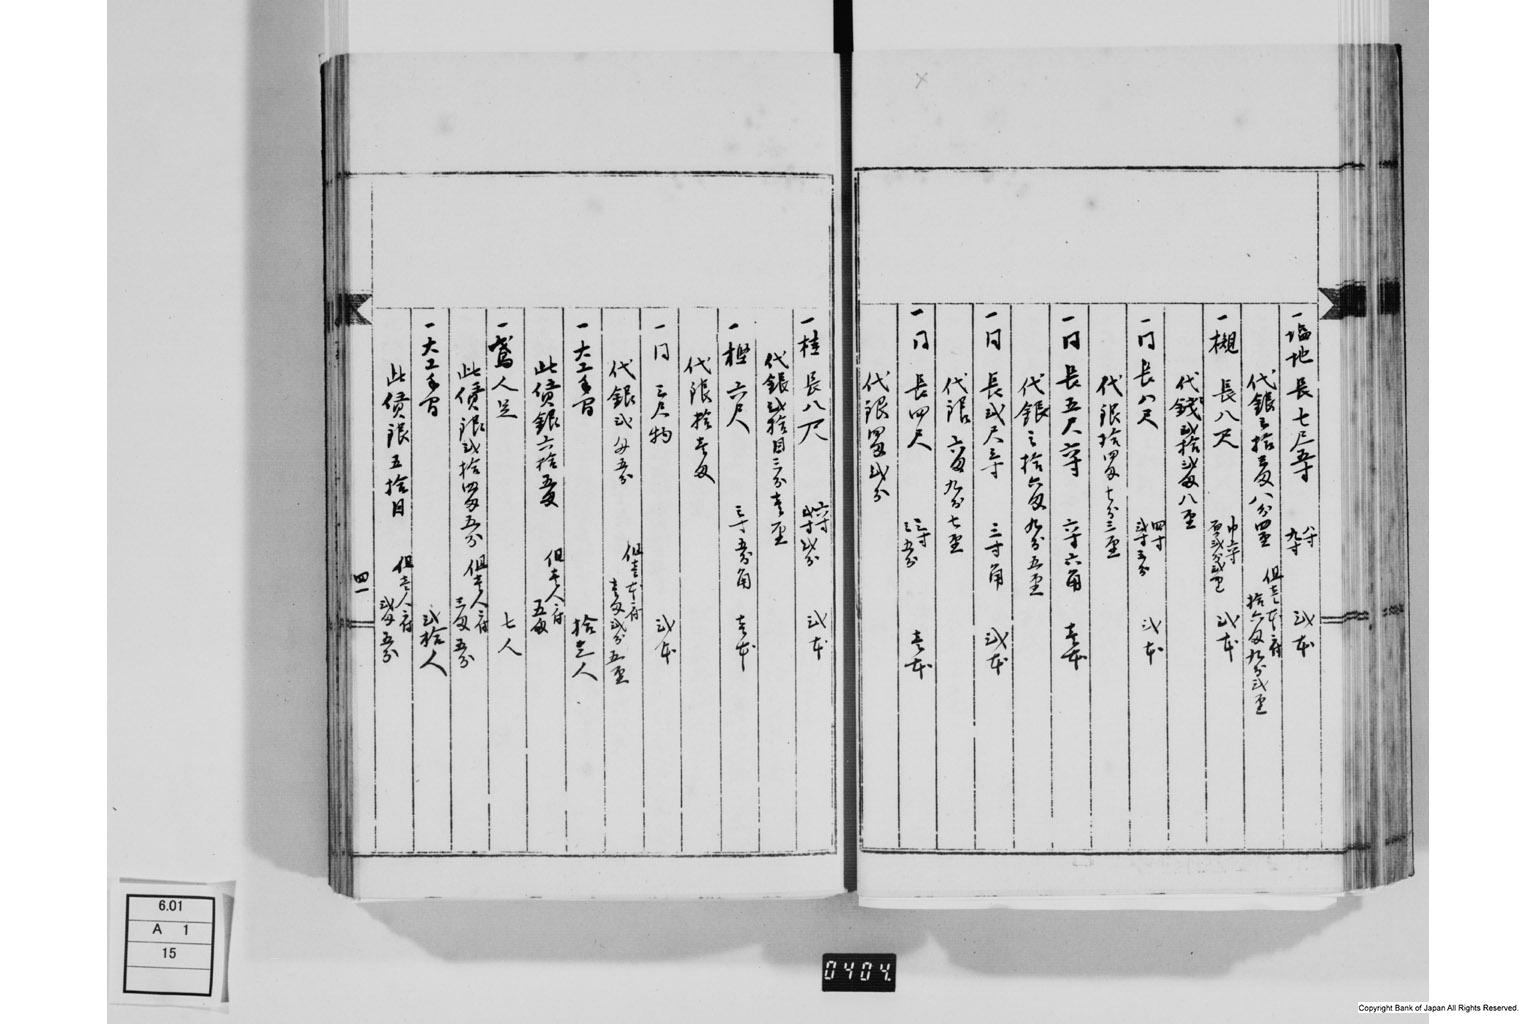 一塩地 長七尺五寸 八寸 九寸 弐本
代銀三拾三匁八分四厘 但壱本ニ付 拾六匁九分弐厘
一槻 長八尺 巾六寸 厚弐寸弐分 弐本
代銭弐拾弐匁八厘
一同 長八尺 四寸 弐寸五分 弐本
代銀拾四匁七分三厘
一同 長五尺六寸 六寸六角 壱本
代銀三拾六匁九分五厘
一同 長弐尺三寸 三寸角 弐本
代銀六匁九分七厘
一同 長四尺 三寸 三寸五分 壱本
代銀四匁弐分
一桂 長八尺 六寸 弐寸弐分 弐本
代銀弐拾目三分壱厘
一樫 六尺 三寸五分角 壱本
代銀拾壱匁
一同 三尺物 弐本
代銀弐匁五分 但壱本ニ付 壱匁弐分五厘
一大工手間 拾三人
此賃銀六拾五匁 但壱人ニ付 五匁
一鳶人足 七人
此賃銀弐拾四匁五分 但壱人ニ付 三匁五分
一大工手間 弐拾人
此賃銀五拾目 但壱人ニ付 弐匁五分
四一
6.01
A 1
15
0404.
Copyright Bank of Japan All Rights Reserved.